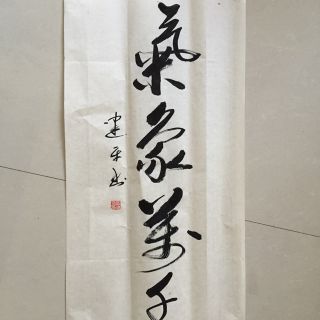 氣象萬千
建平书